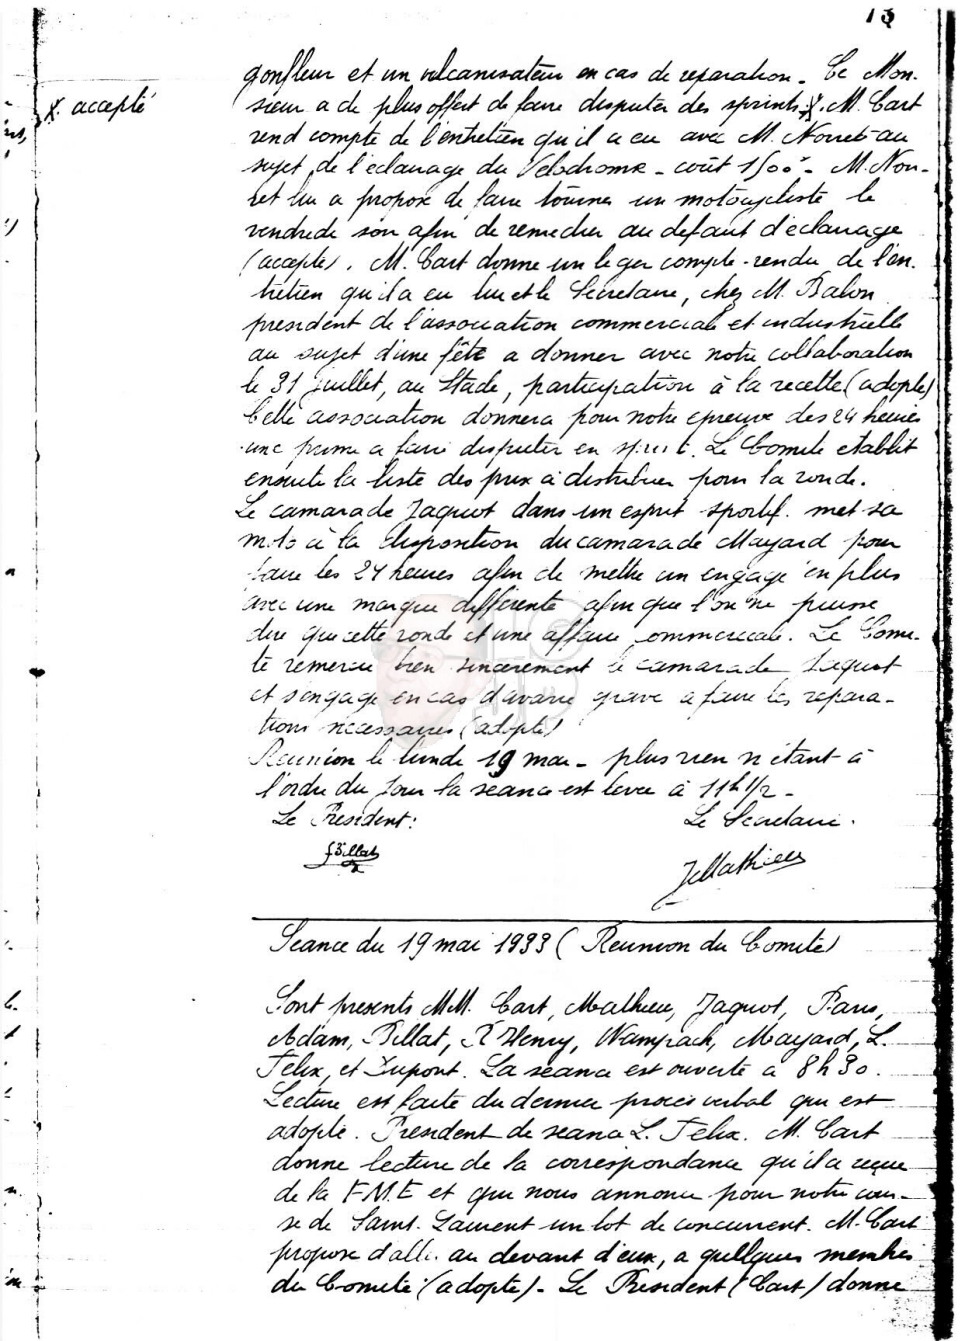 13
gonfleur et un vulcanisateur en cas de reparation. Ce Mon-
X. accepté
sieur a de plus offert de faire disputer des sprints X. M. Cart
rend compte de l'entretien qu'il a eu avec M. Norret au
sujet de l'éclairage du Velodrome - coût 1500f - M. Nor-
ret lui a propose de faire tourner un motocycliste le
vendredi soir afin de remedier au defaut d'éclairage
(accepte). M. Cart donne un leger compte-rendu de l'en-
tretien qu'il a eu lui et le Secretaire, chez M. Balon
president de l'association commerciale et industrielle
au sujet d'une fête a donner avec notre collaboration
le 31 juillet, au Stade, participation à la recette (adopte)
Cette association donnera pour notre epreuve des 24 heures
une prime a faire disputer en sprint. Le Comite etablit
ensuite la liste des prix a distribuer pour la ronde.
Le camarade Jaquot dans un esprit sportif. met sa
moto à la disposition du camarade Mayard pour
faire les 24 heures afin de mettre un engagé en plus
avec une marque différente afin que l'on ne puisse
dire que cette ronde est une affaire commerciale. Le Comi-
te remercie bien sincerement le camarade Jaquot
et s'engage en cas d'avarie grave a faire les repara-
tions necessaires (adopte)
Reunion le lundi 19 mai - plus rien n'étant à
l'ordre du Jour la seance est levee à 11h 1/2 -
Le President: Le Secretaire.
Billat JMathieu
Seance du 19 mai 1933 (Reunion du Comité)
Sont presents MM. Cart, Mathieu, Jaquot, Paris,
Adam, Billat, R Henry, Wampach, Mayard, L.
Felix, et Dupont. La seance est ouverte a 8h30.
Lecture est faite du dernier procès verbal qui est
adopte. President de seance L. Felix. M. Cart
donne lecture de la correspondance qu'il a reçue
de la F.M.E et qui nous annonce pour notre cour-
se de Saint-Laurent un lot de concurrent. M. Cart
propose d'aller au devant d'eux, a quelques membres
du Comité (adopte) - Le President (Cart) donne